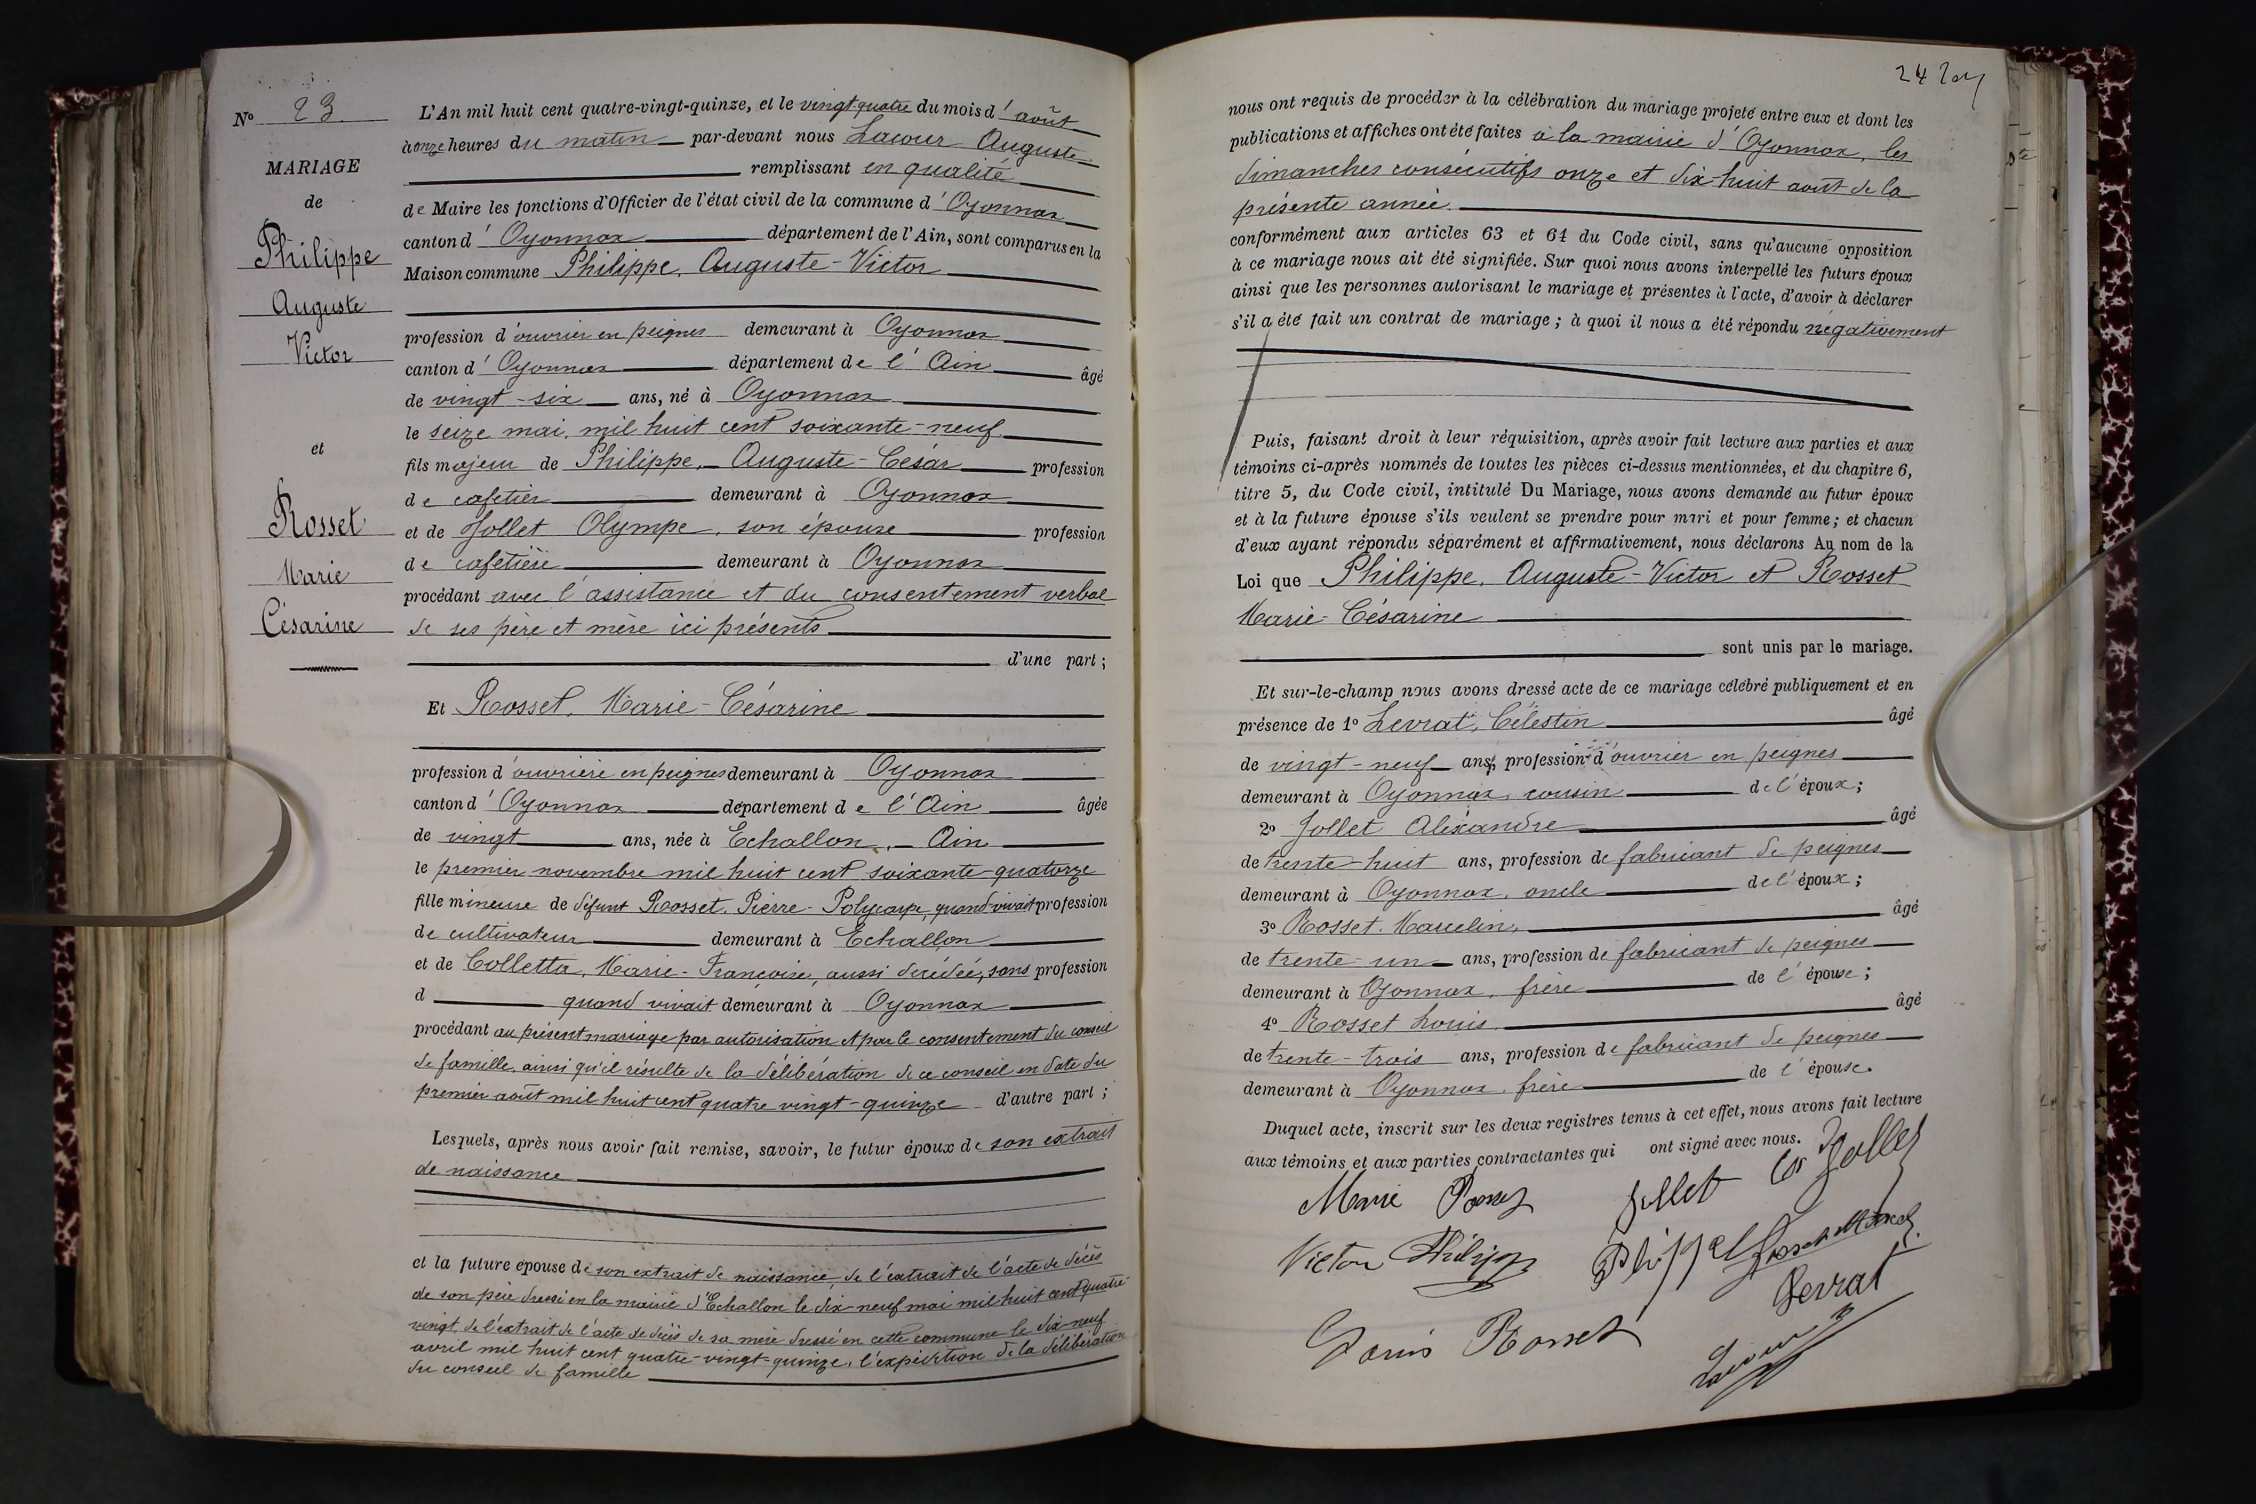 N° 23.
MARIAGE
de
Philippe
Auguste
Victor
et
Rosset
Marie
Césarine
L'An mil huit cent quatre-vingt-quinze, et le vingt-quatre du mois d'août
à onze heures du matin par-devant nous Lacour Auguste
remplissant en qualité
de Maire les fonctions d'Officier de l'état civil de la commune d'Oyonnax
canton d'Oyonnax département de l'Ain, sont comparus en la
Maison commune Philippe, Auguste-Victor
profession d'ouvrier en peignes demeurant à Oyonnax
canton d'Oyonnax département de l'Ain âgé
de vingt-six ans, né à Oyonnax
le seize mai, mil huit cent soixante-neuf
fils majeur de Philippe, Auguste-César profession
de cafetier demeurant à Oyonnax
et de Jollet Olympe, son épouse profession
de cafetière demeurant à Oyonnax
procédant avec l'assistance et du consentement verbal
de ses père et mère ici présents
d'une part;
Et Rosset, Marie-Césarine
profession d'ouvrière en peignes demeurant à Oyonnax
canton d'Oyonnax département de l'Ain âgée
de vingt ans, née à Echallon, Ain
le premier novembre mil huit cent soixante-quatorze
fille mineure de défunt Rosset, Pierre-Polycarpe, quand vivait profession
de cultivateur demeurant à Echallon
et de Colletta, Marie-Françoise, aussi décédée, sans profession
d quand vivait demeurant à Oyonnax
procédant au présent mariage par autorisation et par le consentement du conseil
de famille, ainsi qu'il résulte de la délibération de ce conseil en date du
premier août mil huit cent quatre vingt-quinze d'autre part;
Lesquels, après nous avoir fait remise, savoir, le futur époux de son extrait
de naissance
et la future épouse de son extrait de naissance, de l'extrait de l'acte de décès
de son père dressé en la mairie d'Echallon le dix-neuf mai mil huit cent quatre
vingt, de l'extrait de l'acte de décès de sa mère dressé en cette commune le dix-neuf
avril mil huit cent quatre-vingt-quinze, l'expédition de la délibération
du conseil de famille
24
nous ont requis de procéder à la célébration du mariage projeté entre eux et dont les
publications et affiches ont été faites à la mairie d'Oyonnax, les
dimanches consécutifs onze et dix-huit août de la
présente année.
conformément aux articles 63 et 64 du Code civil, sans qu'aucune opposition
à ce mariage nous ait été signifiée. Sur quoi nous avons interpellé les futurs époux
ainsi que les personnes autorisant le mariage et présentes à l'acte, d'avoir à déclarer
s'il a été fait un contrat de mariage; à quoi il nous a été répondu négativement
Puis, faisant droit à leur réquisition, après avoir fait lecture aux parties et aux
témoins ci-après nommés de toutes les pièces ci-dessus mentionnées, et du chapitre 6,
titre 5, du Code civil, intitulé Du Mariage, nous avons demandé au futur époux
et à la future épouse s'ils veulent se prendre pour mari et pour femme; et chacun
d'eux ayant répondu séparément et affirmativement, nous déclarons Au nom de la
Loi que Philippe, Auguste-Victor et Rosset
Marie-Césarine
sont unis par le mariage.
Et sur-le-champ nous avons dressé acte de ce mariage célébré publiquement et en
présence de 1° Levrat, Célestin âgé
de vingt-neuf ans, profession d'ouvrier en peignes
demeurant à Oyonnax, cousin de l'époux;
2° Jollet Alexandre âgé
de trente-huit ans, profession de fabricant de peignes
demeurant à Oyonnax, oncle de l'époux;
3° Rosset, Marcelin, âgé
de trente-un ans, profession de fabricant de peignes
demeurant à Oyonnax, frère de l'épouse;
4° Rosset Louis âgé
de trente-trois ans, profession de fabricant de peignes
demeurant à Oyonnax, frère de l'épouse.
Duquel acte, inscrit sur les deux registres tenus à cet effet, nous avons fait lecture
aux témoins et aux parties contractantes qui ont signé avec nous.
Marie Rosset Jollet Jollet
Victor Philippe Philippe Rosset Marcel
Levrat
Louis Rosset
Lacour